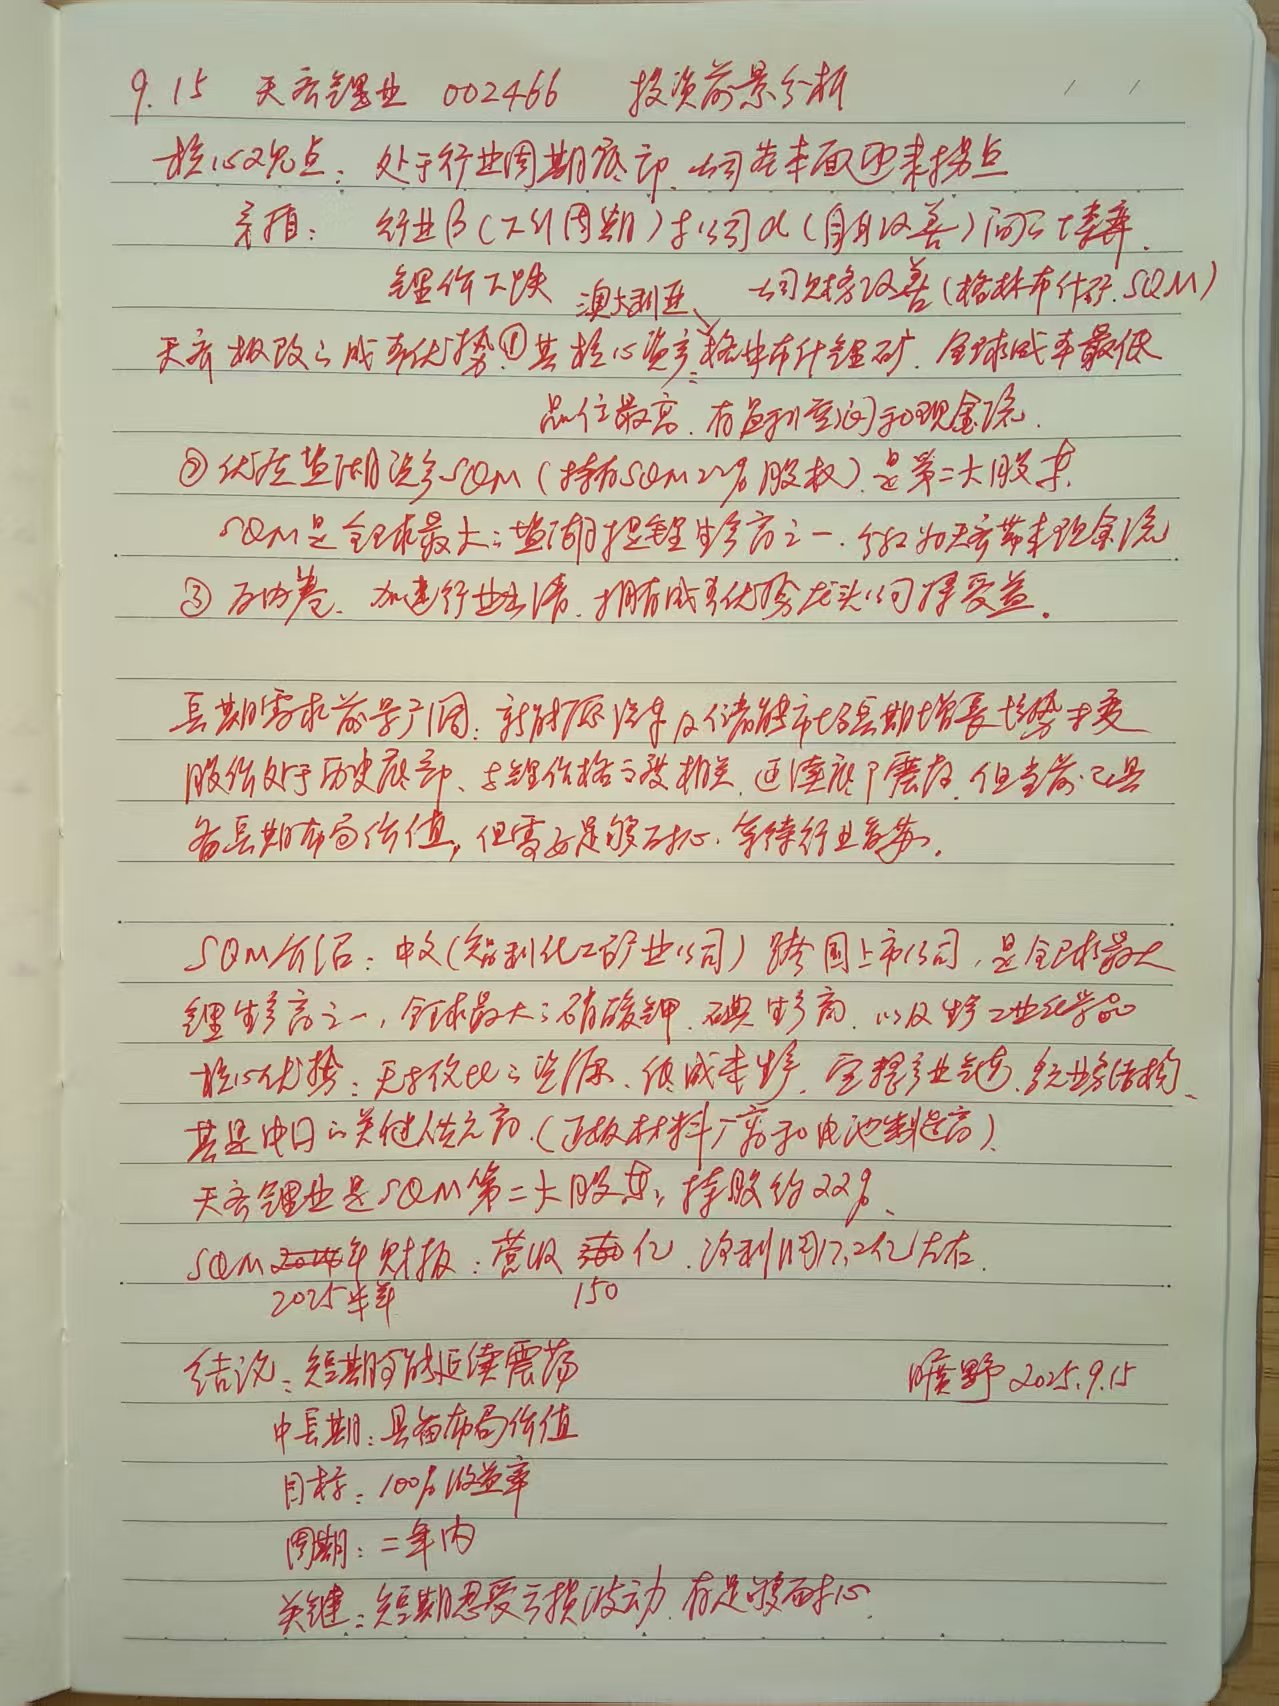 9.15 天齐锂业 002466 投资前景分析
核心观点: 处于行业周期底部、公司基本面迎来拐点
矛盾: 行业β(下行周期)与公司α(自身改善)间的博弈.
锂价下跌 公司财务改善(格林布什矿、SQM)
澳大利亚
天齐极致的成本优势①其核心资产:格林布什锂矿、全球成本最低
品位最高、有盈利空间和现金流.
②优质盐湖资产SQM(持有SQM22%股权)是第二大股东.
SQM是全球最大的盐湖提锂生产商之一、分红为天齐带来现金流
③反内卷、加速行业出清、拥有成本优势龙头公司将受益.
长期需求前景广阔:新能源汽车及储能市场长期增长趋势不变
股价处于历史底部、与锂价格高度相关、还连续下震荡、但当前已具
备长期布局价值,但需要足够耐心、等待行业复苏.
SQM介绍:中文(智利化工矿业公司)跨国上市公司,是全球最大
锂生产商之一,全球最大的硝酸钾、碘生产商、以及生产工业化学品
核心优势:无与伦比的资源、低成本生产、完整产业链、多元业务结构、
其是中日的关键供应商.(正极材料厂商和电池制造商)
天齐锂业是SQM第二大股东,持股约22%、
SQM 年财报:营收 亿、净利润17.2亿左右.
2025半年 150
结论:短期可能延续震荡 旷野 2025.9.15
中长期:具备布局价值
目标:100%收益率
周期:二年内
关键:短期忍受亏损波动、有足够耐心.